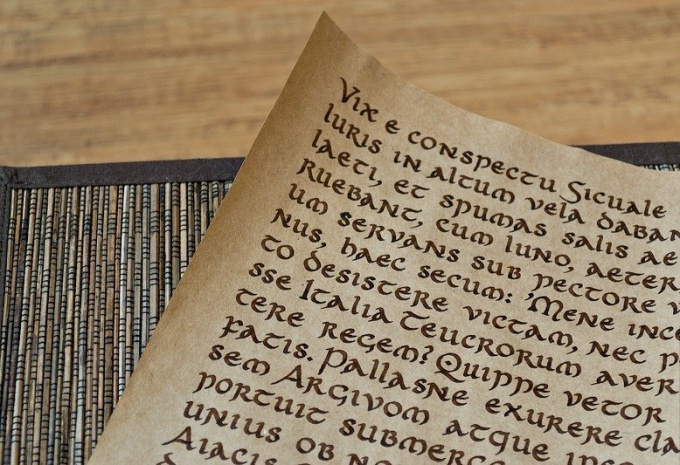 Vix e conspectu Sicuale
luris in altum vela daban
laeti, et spumas salis ae
ruebant, cum Iuno, aeter
um servans sub pectore v
nus, haec secum: 'Mene ince
to desistere victam, nec p
sse Italia Teucrorum aver
tere regem? Quippe vetor
fatis. Pallasne exurere cla
sem Argivom atque ips
portuit submerg
unius ob no
Aiacis